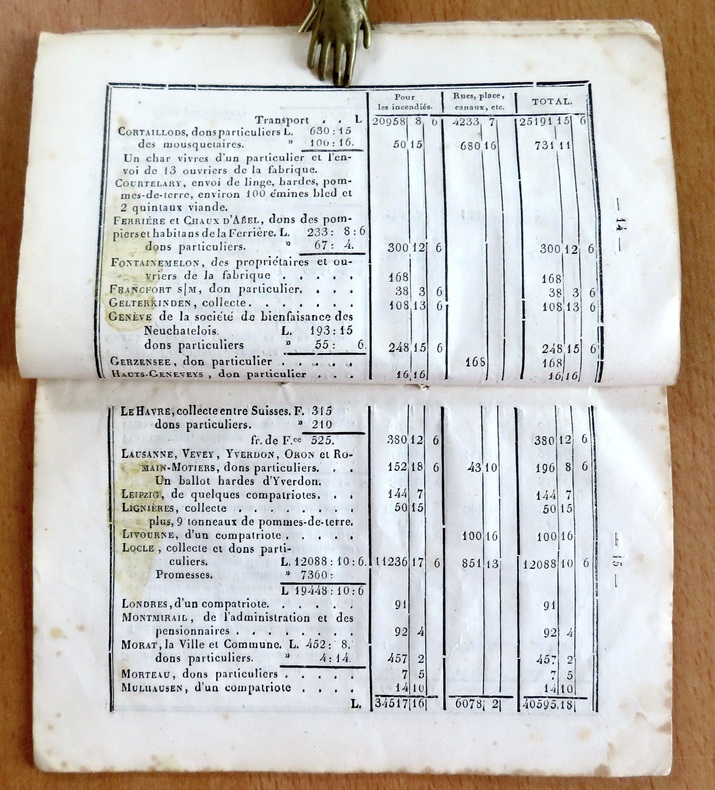 Pour les incendiés. | Rues, place, canaux, etc. | TOTAL.
Transport . . L 20958 8 6 | 4233 7 | 25191 15 6
CORTAILLODS, dons particuliers L. 630:15
des mousquetaires. » 100:16. 50 15 | 680 16 | 731 11
Un char vivres d'un particulier et l'en-
voi de 13 ouvriers de la fabrique.
COURTELARY, envoi de linge, hardes, pom-
mes-de-terre, environ 100 émines bled et
2 quintaux viande.
— 14 —
FERRIÈRE et CHAUX D'ABEL, dons des pom-
piers et habitans de la Ferrière. L. 233: 8:6
dons particuliers. » 67: 4. 300 12 6 | 300 12 6
FONTAINEMELON, des propriétaires et ou-
vriers de la fabrique . . . . . 168 | 168
FRANCFORT s|M, don particulier. . . . 38 3 6 | 38 3 6
GELTERKINDEN, collecte. . . . . . . 108 13 6 | 108 13 6
GENÈVE de la société de bienfaisance des
Neuchatelois. L. 193:15
dons particuliers » 55: 6. 248 15 6 | 248 15 6
GERZENSEE, don particulier . . . . . 168 | 168
HAUTS-GENEVEYS, don particulier . . . 16 16 | 16 16
LE HAVRE, collecte entre Suisses. F. 315
dons particuliers. » 210
fr. de F.ce 525. 380 12 6 | 380 12 6
LAUSANNE, VEVEY, YVERDON, ORON et RO-
MAIN-MOTIERS, dons particuliers. . . 152 18 6 | 43 10 | 196 8 6
Un ballot hardes d'Yverdon.
LEIPZIG, de quelques compatriotes. . . 144 7 | 144 7
LIGNIÈRES, collecte . . . . . . . 50 15 | 50 15
plus, 9 tonneaux de pommes-de-terre.
LIVOURNE, d'un compatriote . . . . . 100 16 | 100 16
— 15 —
LOCLE, collecte et dons parti-
culiers. L. 12088:10:6. 11236 17 6 | 851 13 | 12088 10 6
Promesses. » 7360:
L 19448:10:6
LONDRES, d'un compatriote. . . . . . 91 | 91
MONTMIRAIL, de l'administration et des
pensionnaires . . . . . . . 92 4 | 92 4
MORAT, la Ville et Commune. L. 452: 8.
dons particuliers. » 4:14. 457 2 | 457 2
MORTEAU, dons particuliers . . . . . 7 5 | 7 5
MULHAUSEN, d'un compatriote . . . . 14 10 | 14 10
L. 34517 16 | 6078 2 | 40595 18